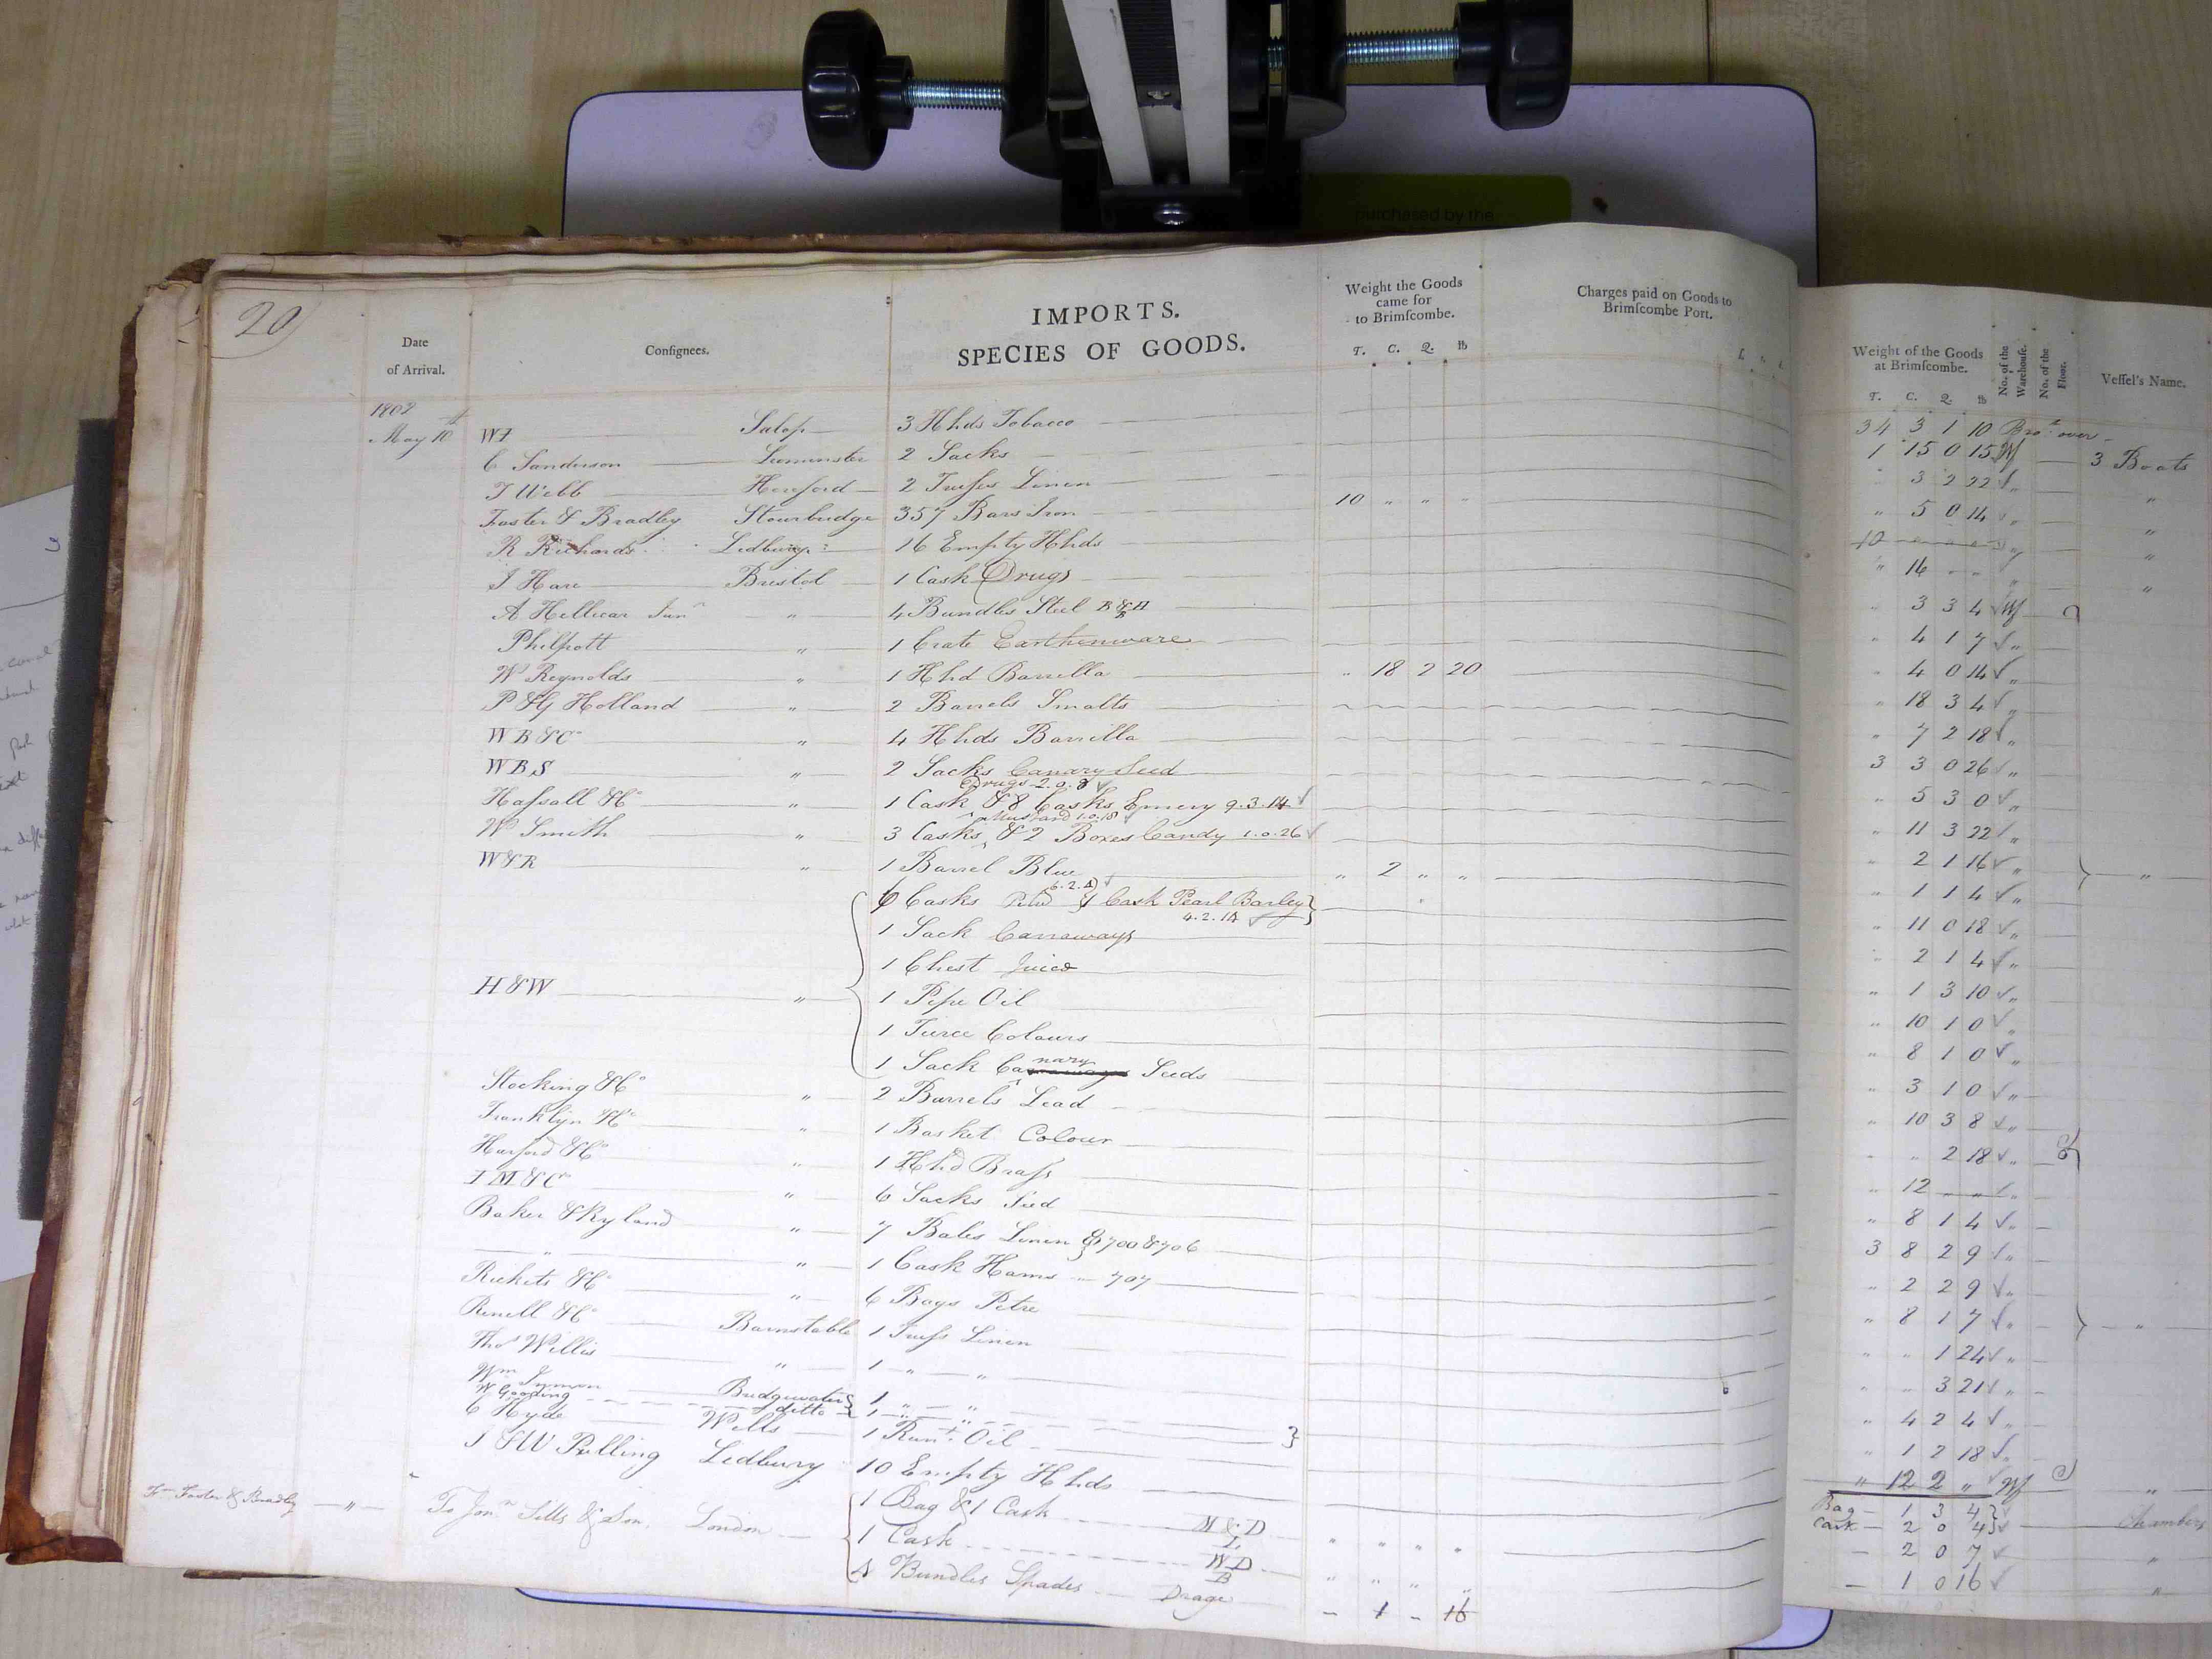 purchased by the
20
Date of Arrival.
Consignees.
IMPORTS.
SPECIES OF GOODS.
Weight the Goods came for to Brimſcombe.
T. C. Q. lb
Charges paid on Goods to Brimſcombe Port.
Weight of the Goods at Brimſcombe.
T. C. Q. lb
No. of the Warehouſe.
No. of the Floor.
Veſſel's Name.
1802
34 3 1 10 Bro.t over
May 10th WI Salop 3 Hhds Tobacco 1 15 0 15 Wf 3 Boats
C Sanderson Leominster 2 Sacks " 3 2 22 " "
T Webb Hereford 2 Truſses Linen " 5 0 14 " "
Foster & Bradley Stourbridge 357 Bars Iron 10 " " " 10 " " " "
R Richards Ledbury 16 Empty Hhds " 16 " " " "
J Hare Bristol 1 Cask Drugs " 3 3 4 Wf
A Hellicar Junr " 4 Bundles Steel " 4 1 7 "
Philpott " 1 Crate Earthenware " 4 0 14 "
W Reynolds " 1 Hhd Barrilla " 18 2 20 " 18 3 4 "
P & G Holland " 2 Barrels Smalts " 7 2 18 "
WB & Co " 4 Hhds Barrilla 3 3 0 26 "
WBS " 2 Sacks Canary Seed " 5 3 0 "
Drugs 2.0.8
Haſsall & Co " 1 Cask & 8 Casks Emery 9.3.14 " 11 3 22 "
Mustard 1.0.18
W Smith " 3 Casks & 2 Boxes Candy 1.0.26 " 2 1 16 " "
W & R " 1 Barrel Blue " 2 " " " 1 1 4 "
6.2.4
6 Casks & 1 Cask Pearl Barley " 11 0 18 "
4.2.14
1 Sack Carraways " 2 1 4 "
1 Chest Juice " 1 3 10 "
H & W " 1 Pipe Oil " 10 1 0 "
1 Tierce Colours " 8 1 0 "
1 Sack Canary Seeds " 3 1 0 "
Stocking & Co " 2 Barrels Lead " 10 3 8 "
Franklyn & Co " 1 Basket Colour " " 2 18 "
Harford & Co " 1 Hhd Braſs " 12 " " "
I M & Co " 6 Sacks Seed " 8 1 4 "
Baker & Ryland " 7 Bales Linen 700 & 706 3 8 2 9 "
" " 1 Cask Hams 707 " 2 2 9 "
Rickets & Co " 6 Bags Petre " 8 1 7 " "
Renell & Co Barnstable 1 Truſs Linen " " 1 24 "
Thos Willis " 1 " " " " 3 21 "
Wm Inman Bridgwater 1 " "
W Gooding ditto 1 " " " 4 2 4 "
C Hyde Wells 1 Runt. Oil " 1 2 18 "
J & W Pilling Ledbury 10 Empty Hhds " 12 2 " Wf "
Fm Foster & Bradley " To Jonn Sills & Son, London 1 Bag & 1 Cask M & D L " " " " Bag 1 3 4 Cask 2 0 4 Chambers
1 Cask WD B " " " " 2 0 7 "
4 Bundles Spades Drage 1 16 1 0 16 "